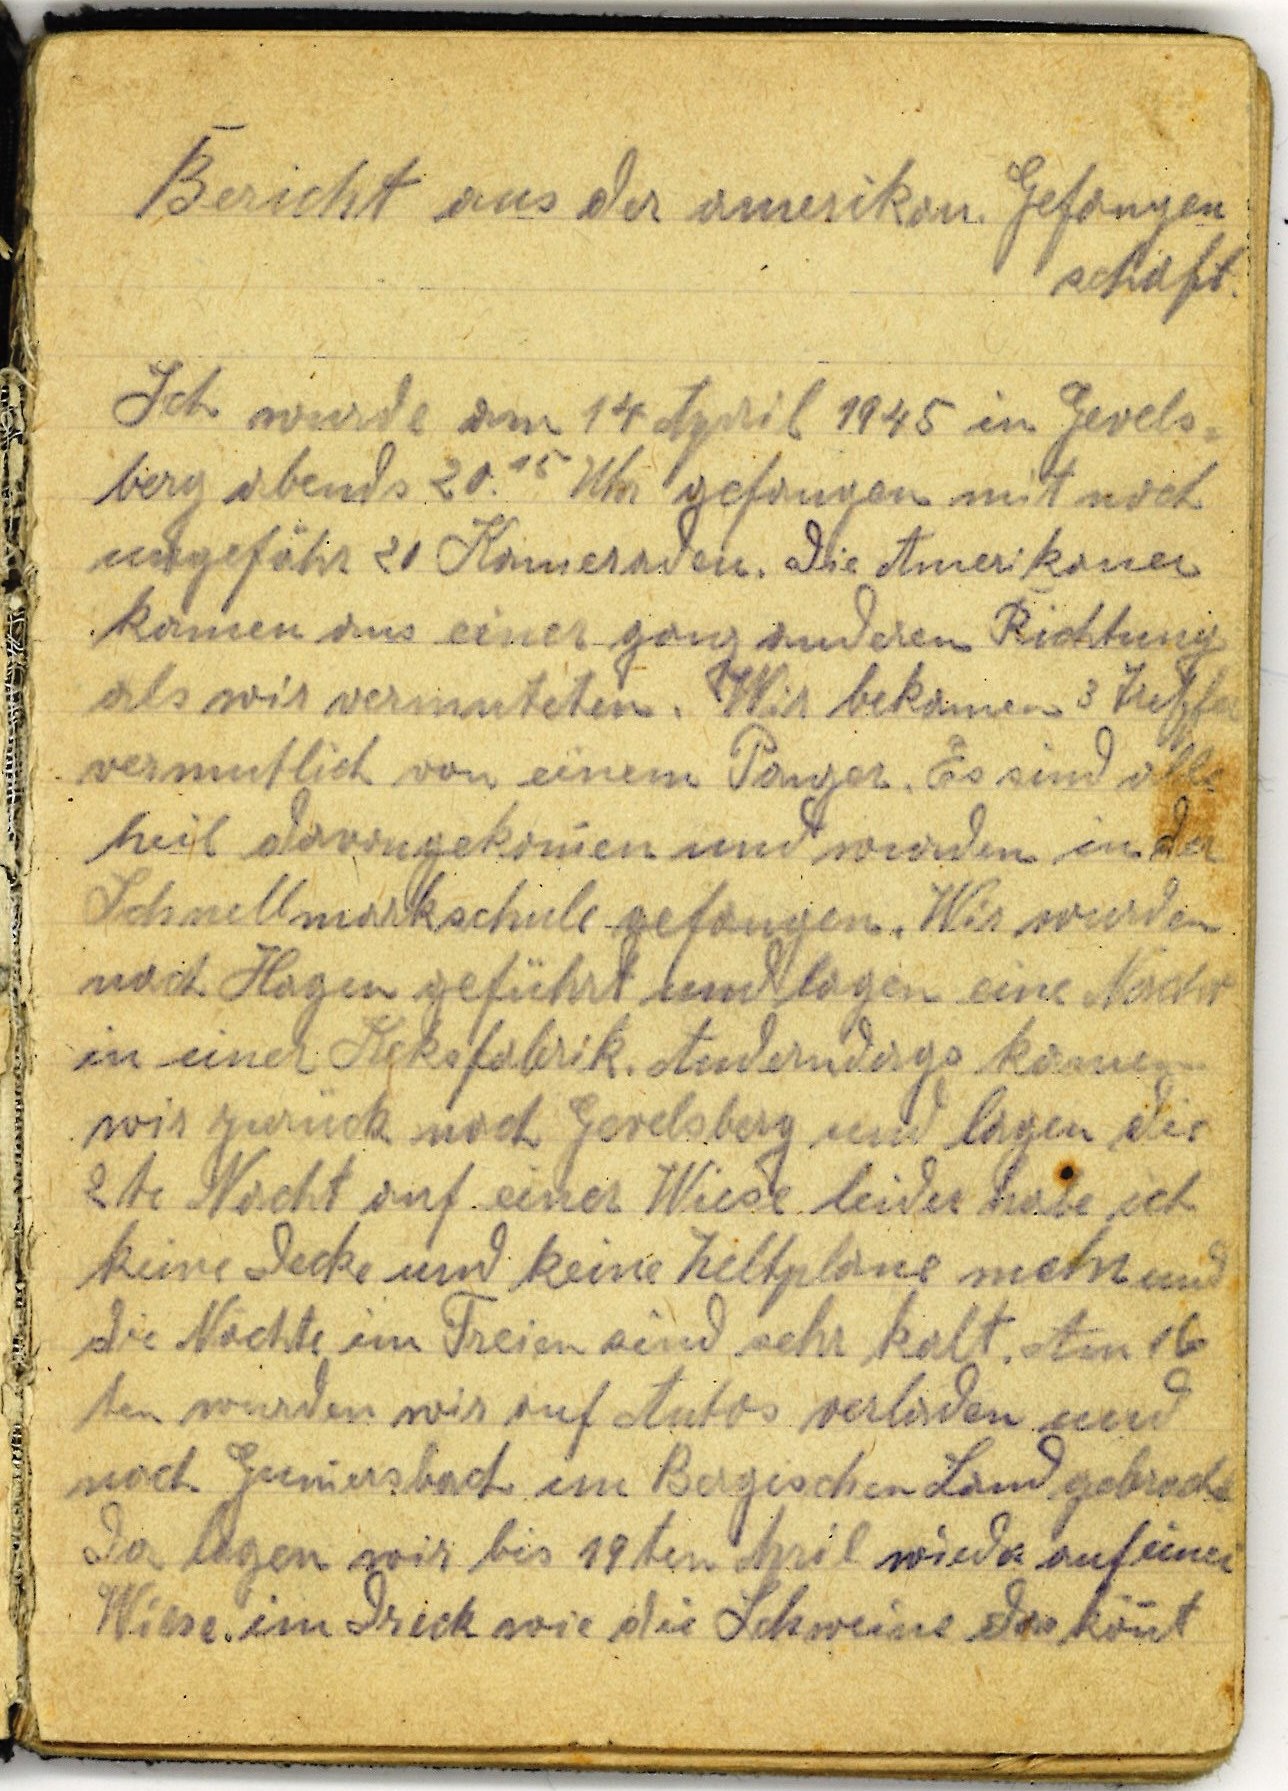 Bericht aus der amerikan. Gefangen
schaft.
Ich wurde am 14 April 1945 in Gevels=
berg abends 20.15 Uhr gefangen mit noch
ungefähr 20 Kameraden. Die Amerikaner
kamen aus einer ganz anderen Richtung
als wir vermuteten. Wir bekamen 3 Treffer
vermutlich von einem Panzer. Es sind alle
heil davongekom̄en und wurden in der
Schnellmarkschule gefangen. Wir wurden
nach Hagen geführt und lagen eine Nacht
in einer Keksfabrik. Anderndags kamen
wir zurück nach Gevelsberg und lagen die
2te Nacht auf einer Wiese leider habe ich
keine Decke und keine Zeltplane mehr und
die Nächte im Freien sind sehr kalt. Am 16
ten wurden wir auf Autos verladen und
nach Gum̄ersbach im Bergischen Land gebracht
Da lagen wir bis 19ten April wieder auf einer
Wiese. im Dreck wie die Schweine das kön̄t